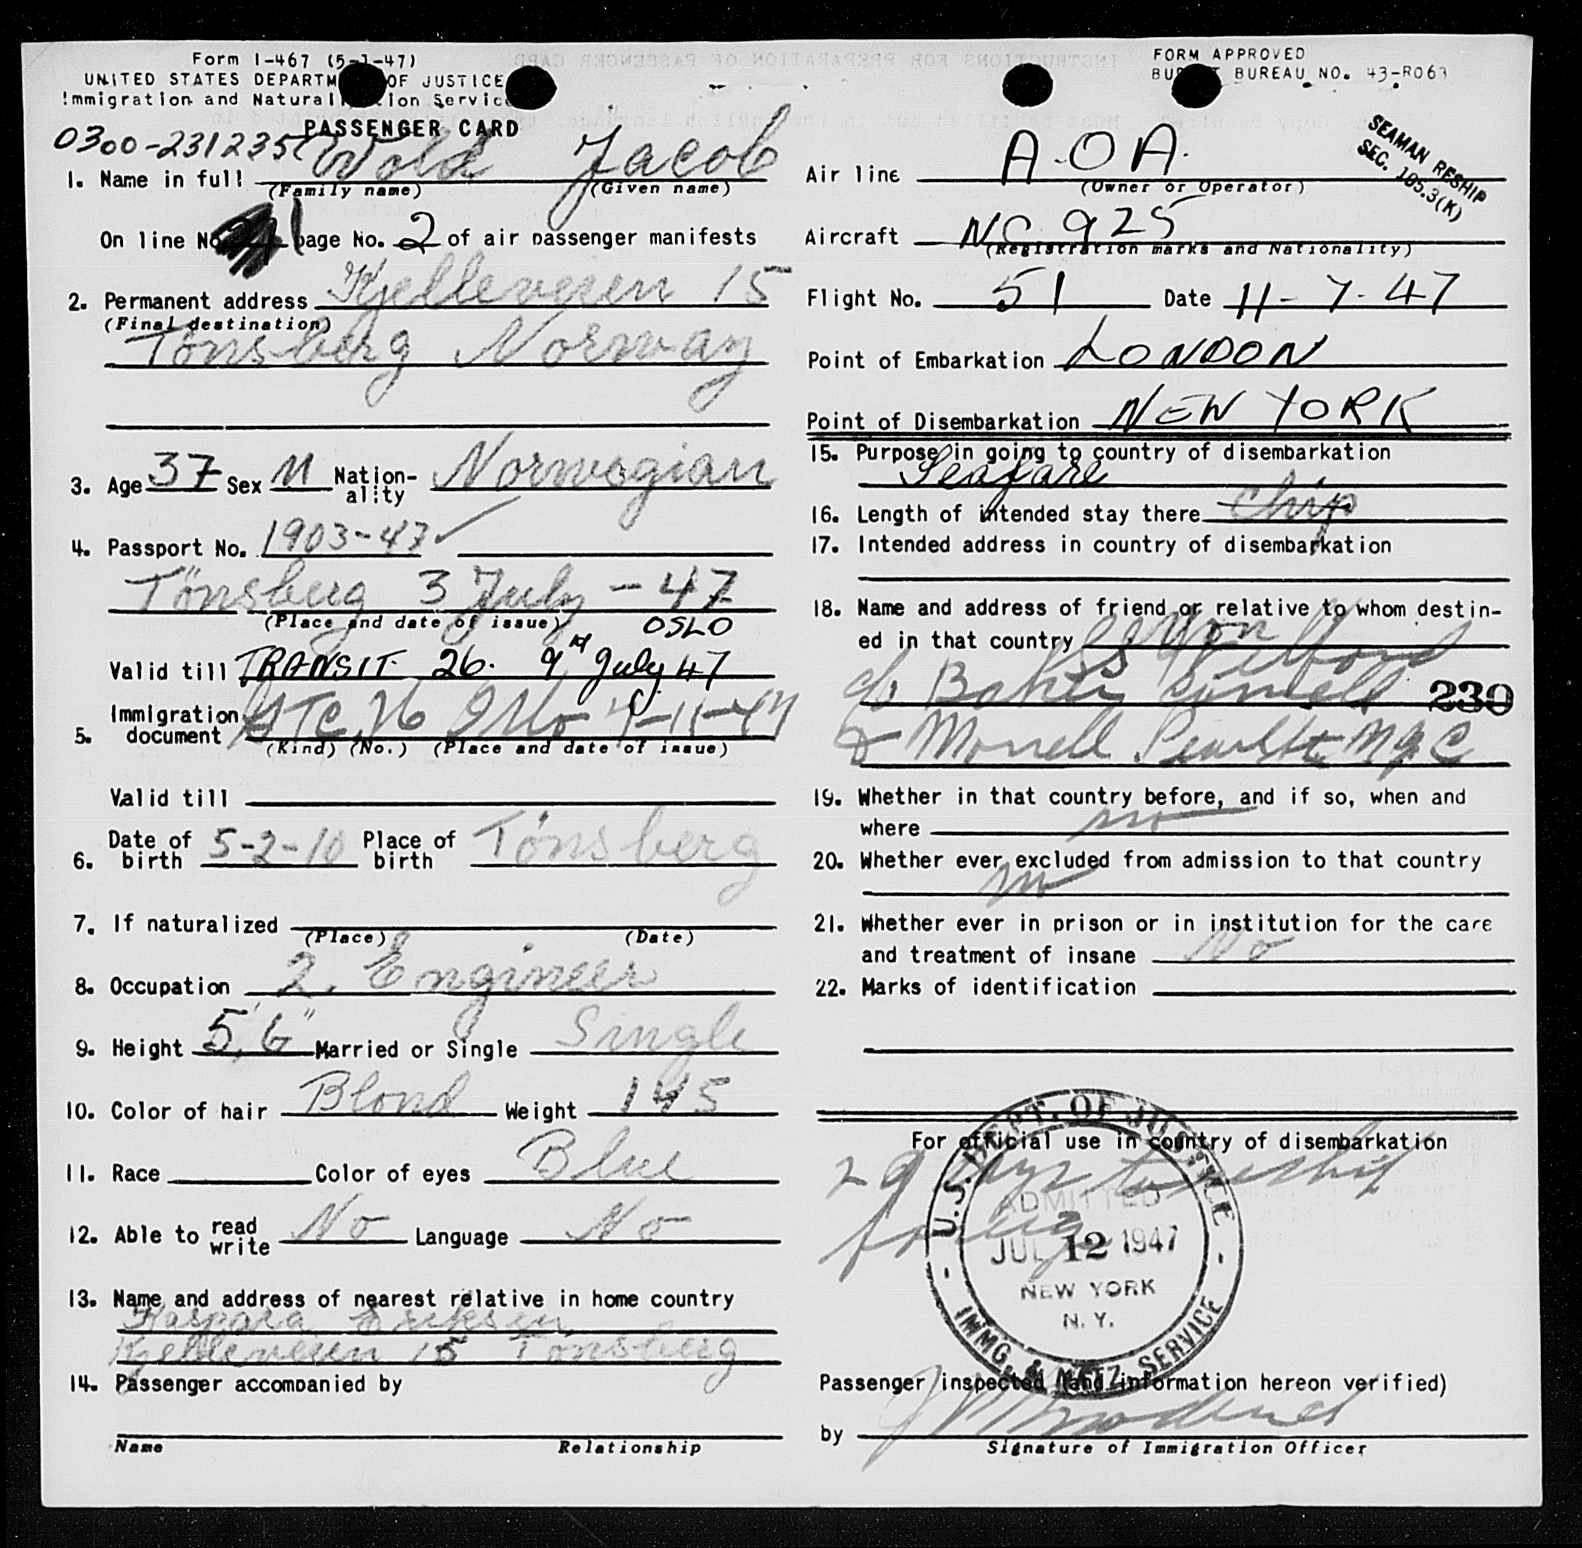 Form I-467 (5-1-47)
UNITED STATES DEPARTM OF JUSTICE
Immigration and Naturali tion Service
PASSENGER CARD
0300-231235
1. Name in full Wold Jacob
(Family name) (Given name)
On line No. 1 page No. 2 of air passenger manifests
2. Permanent address Kjelleveien 15
(Final destination)
Tönsberg Norway
3. Age 37 Sex M Nation-ality Norwegian
4. Passport No. 1903-47
Tönsberg 3 July - 47
(Place and date of issue) OSLO
Valid till TRANSIT. 26. 9th July 47
5. Immigration document 26 Oslo
(Kind) (No.) (Place and date of issue)
Valid till
6. Date of birth 5-2-10 Place of birth Tönsberg
7. If naturalized
(Place) (Date)
8. Occupation 2. Engineer
9. Height 5'6" Married or Single Single
10. Color of hair Blond Weight 145
11. Race Color of eyes Blue
12. Able to read write No Language No
13. Name and address of nearest relative in home country
Kaspara Eriksen
Kjelleveien 15 Tönsberg
14. Passenger accompanied by
Name Relationship
FORM APPROVED
BU T BUREAU NO. 43-R063
SEAMAN RESHIP
SEC. 105.3(K)
Air line A.O.A.
(Owner or Operator)
Aircraft NC 925
(Registration marks and Nationality)
Flight No. 51 Date 11-7-47
Point of Embarkation LONDON
Point of Disembarkation NEW YORK
15. Purpose in going to country of disembarkation
Seafare
16. Length of intended stay there
17. Intended address in country of disembarkation
18. Name and address of friend or relative to whom destin-
ed in that country
c/o 230
& Morrell Pearl St. N.Y.C
19. Whether in that country before, and if so, when and
where no
20. Whether ever excluded from admission to that country
no
21. Whether ever in prison or in institution for the care
and treatment of insane No
22. Marks of identification
For official use in country of disembarkation
29 days to reship
foreign
U.S. DEPT. OF JUSTICE
ADMITTED
JUL 12 1947
NEW YORK
N. Y.
IMMG. & NATZ. SERVICE
Passenger inspected (and information hereon verified)
by
Signature of Immigration Officer